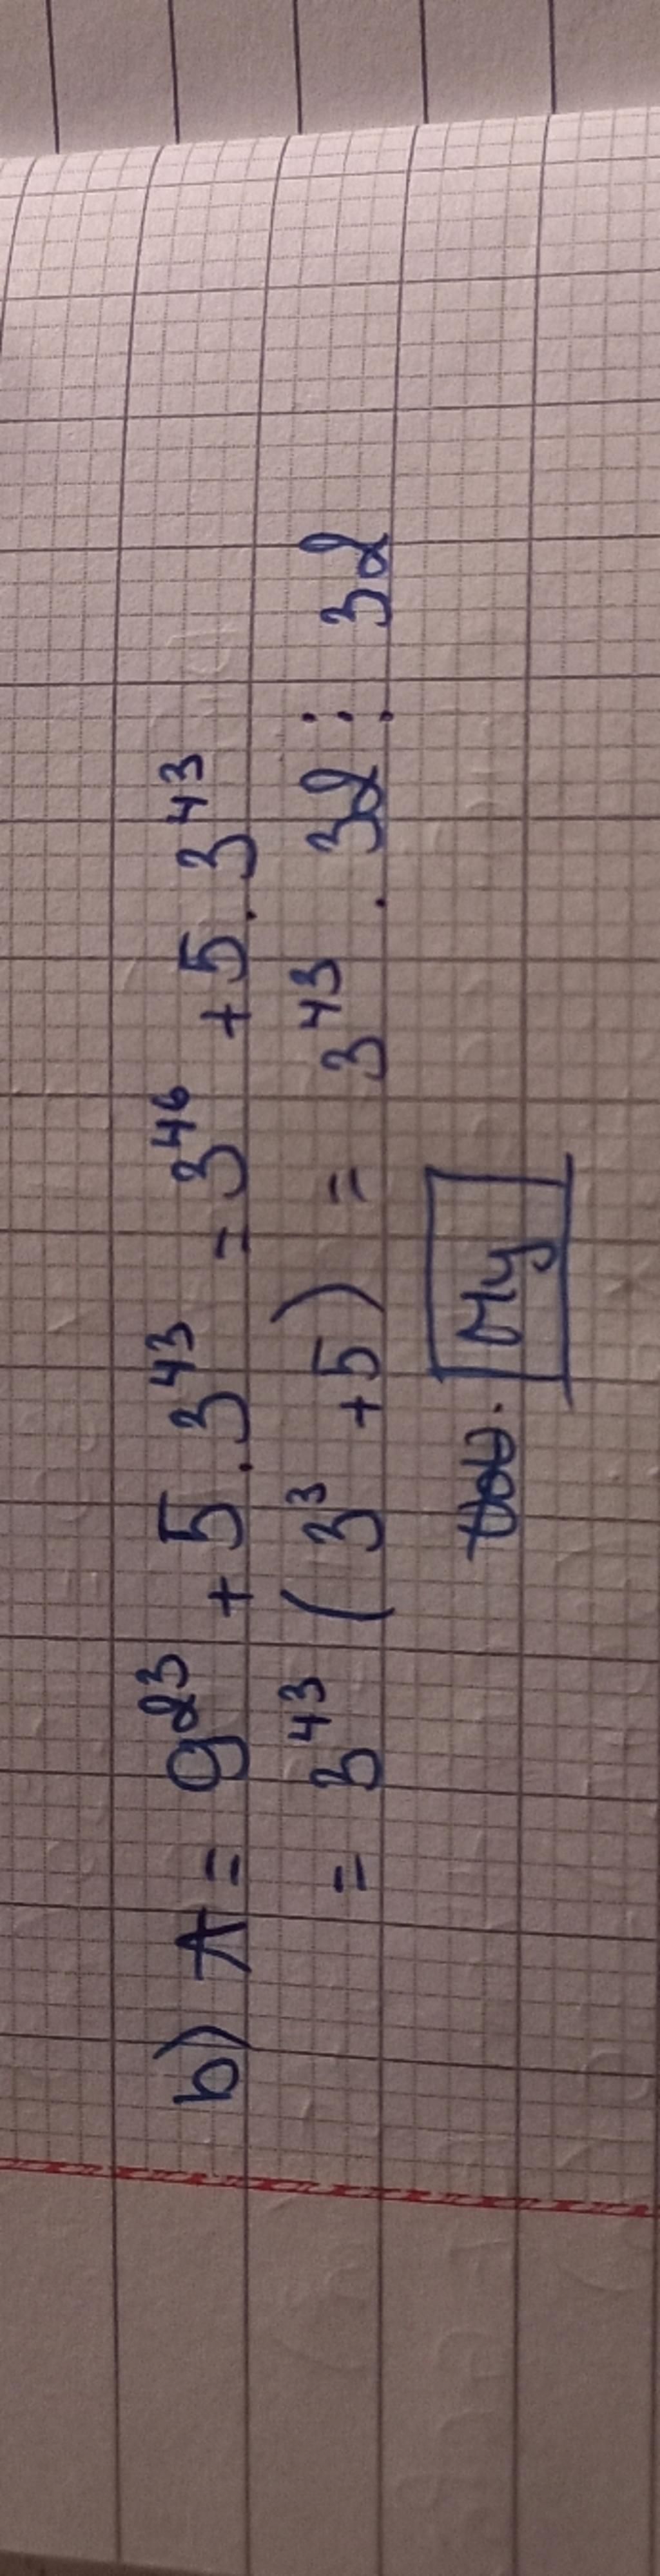 b) A = 9²³ + 5 . 3⁴³ = 3⁴⁶ + 5 . 3⁴³
= 3⁴³ ( 3³ + 5 ) = 3⁴³ . 32 ⋮ 32
My